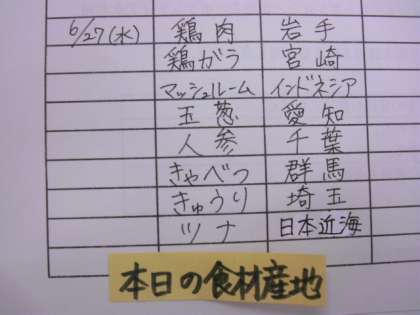 6/27(水) 鶏肉 岩手
鶏ガラ 宮崎
マッシュルーム インドネシア
玉葱 愛知
人参 千葉
きゃべつ 群馬
きゅうり 埼玉
ツナ 日本近海
本日の食材産地